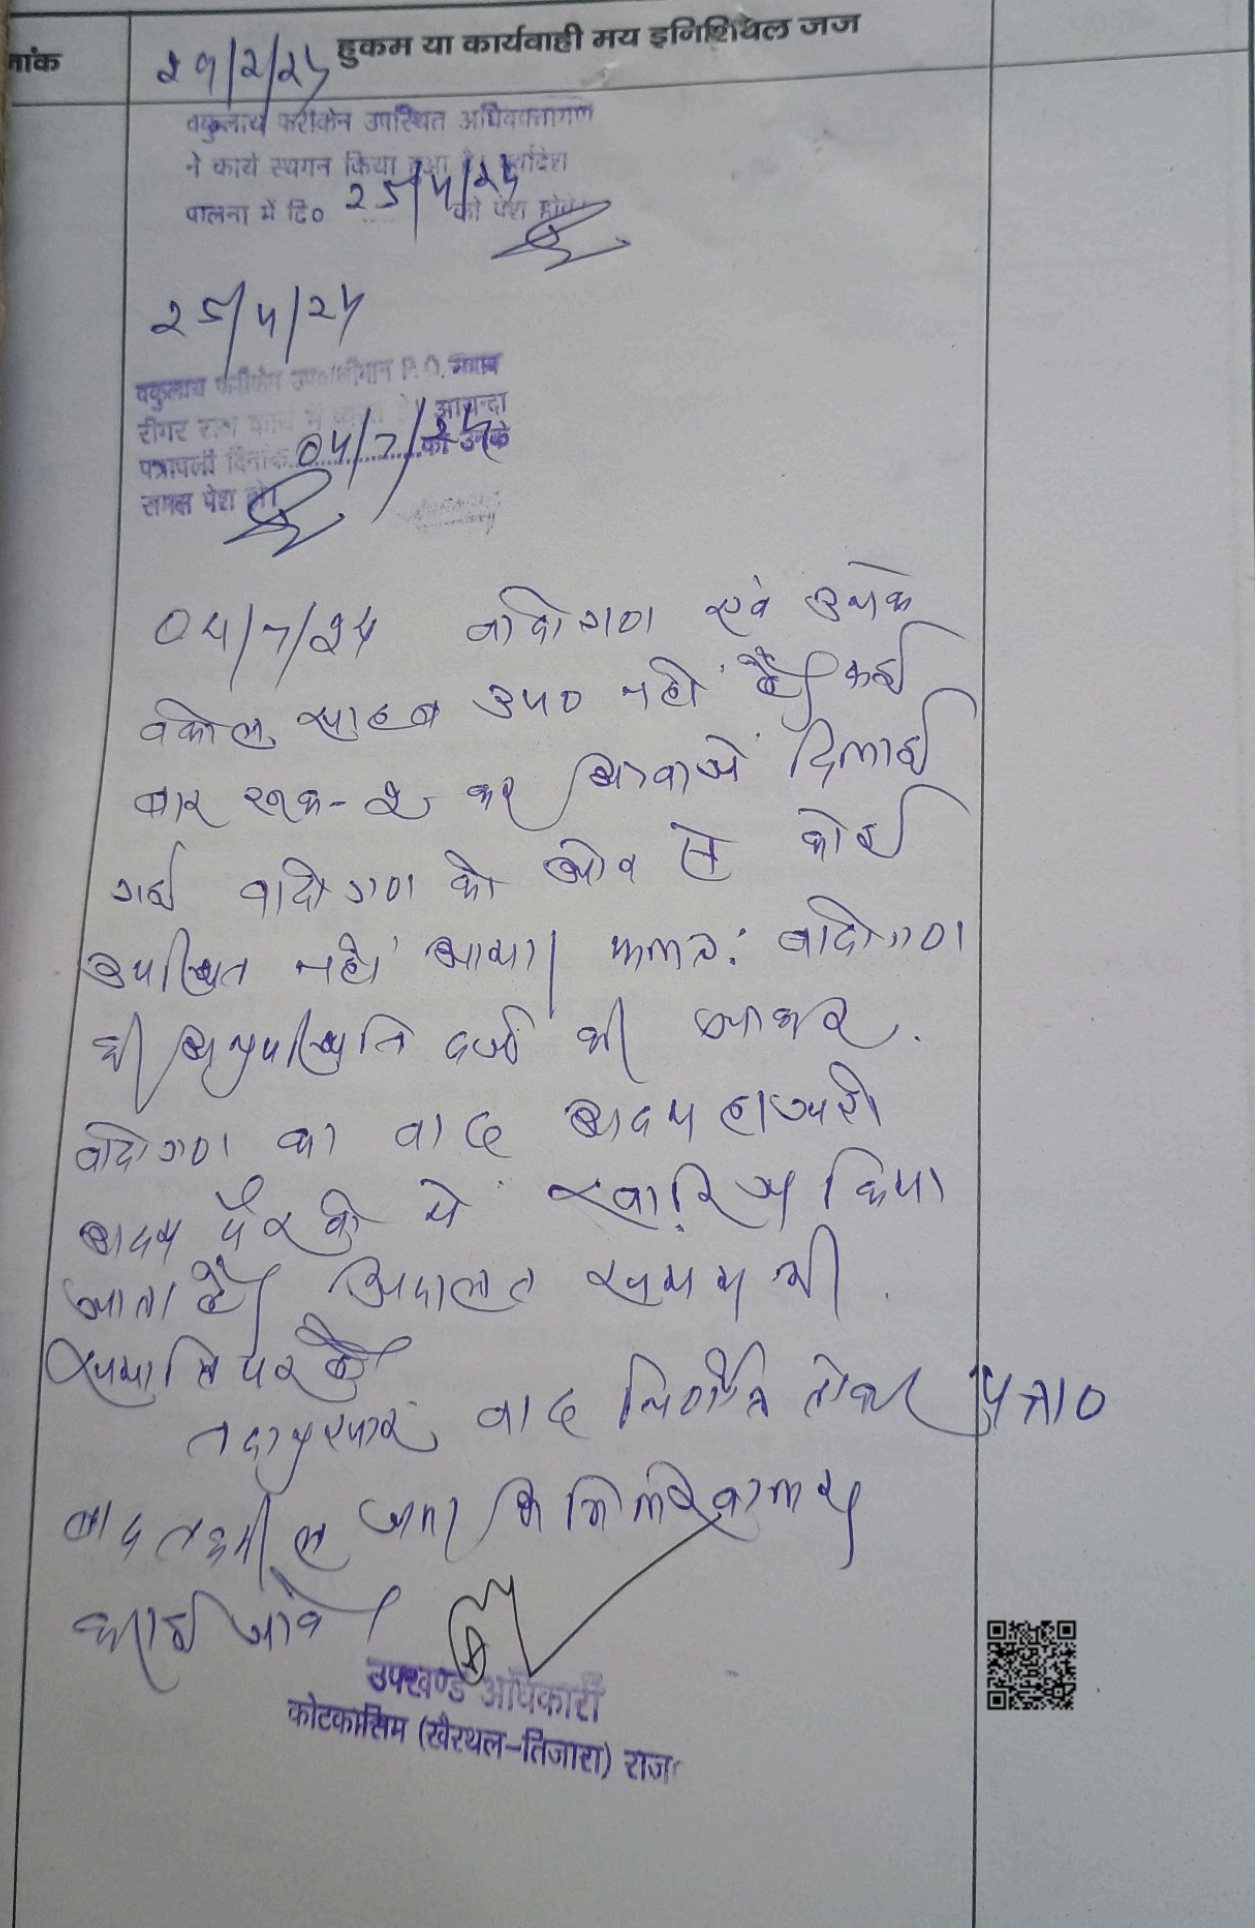 नांक
हुकम या कार्यवाही मय इनिशियल जज
29/2/24
वकुलाय फरीकेन उपस्थित अधिवक्तागण
ने कार्य स्थगन किया हुआ है। पूर्वादेश
पालना में दि० 25/4/24 को पेश होवे।
25/4/24
वकुलाय फरीकेन उप० श्रीमान P.O.
आयन्दा
पत्रावली दिनांक 04/7/24 को उनके
समक्ष पेश हो।
04/7/24 वादीगण एवं उनके
वकील साहब उप० नही है। कई
बार रूक-2 कर आवाजे दिलाई
गई वादीगण की ओर से कोई
उपस्थित नही आया। फलत: वादीगण
की अनुपस्थिति दर्ज की जाकर
वादीगण का वाद अदम हाजरी
अदम पैरवी मे खारिज किया
जाता है। अदालत समय की
समाप्ति पर है।
तदानुसार वाद निर्णित होकर पत्रा०
बाद तकमील जमा अभिलेखागार
कराई जावे।
उपखण्ड अधिकारी
कोटकासिम (खैरथल-तिजारा) राज